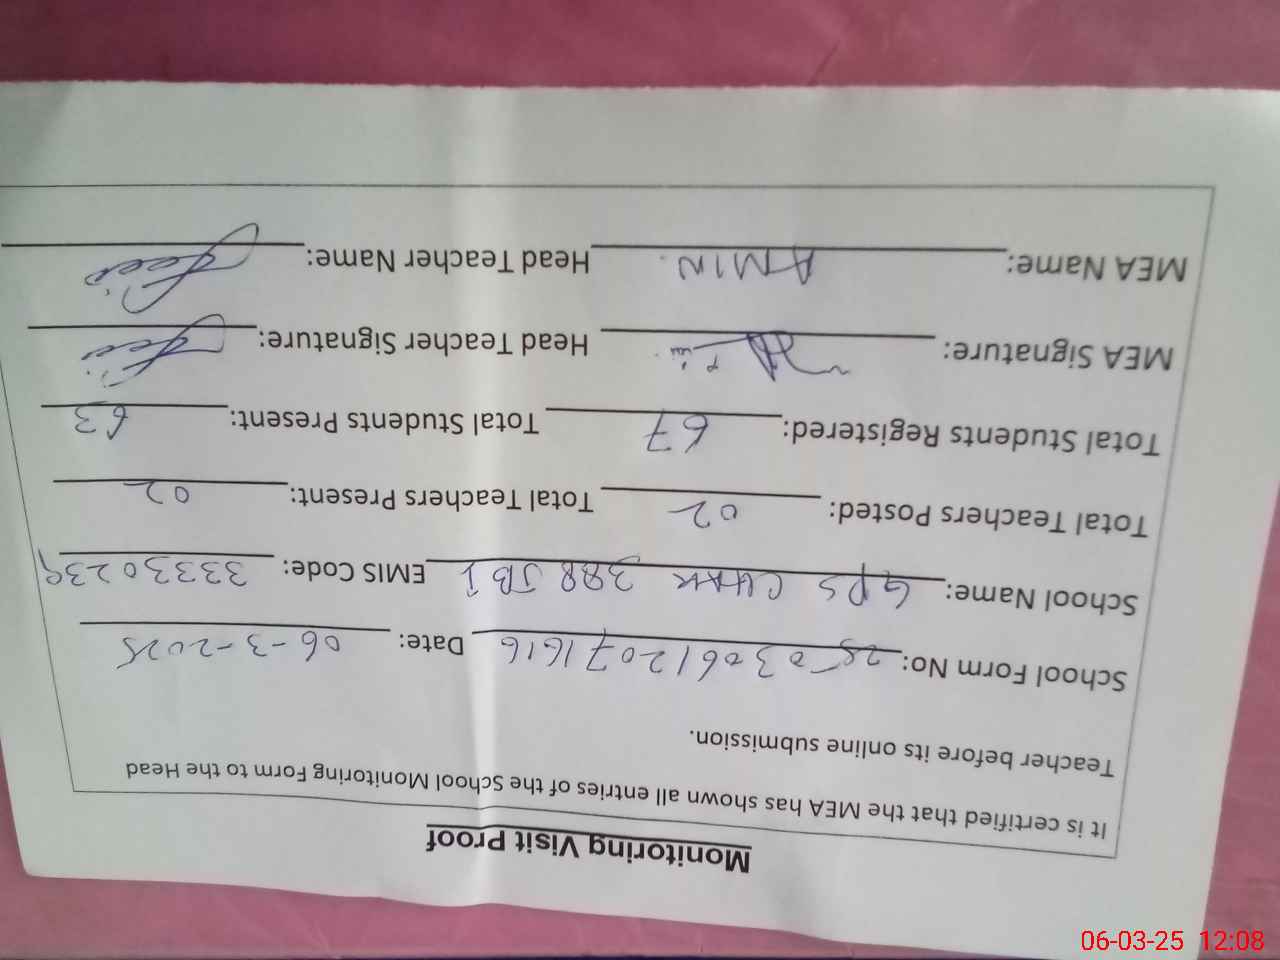 Monitoring Visit Proof
It is certified that the MEA has shown all entries of the School Monitoring Form to the Head
Teacher before its online submission.
School Form No: 25030612071616 Date: 06-3-2025
School Name: GPS CHAK 388 JB I EMIS Code: 33330239
Total Teachers Posted: 02 Total Teachers Present: 02
Total Students Registered: 67 Total Students Present: 63
MEA Signature: Head Teacher Signature:
MEA Name: AMIN. Head Teacher Name:
06-03-25 12:08